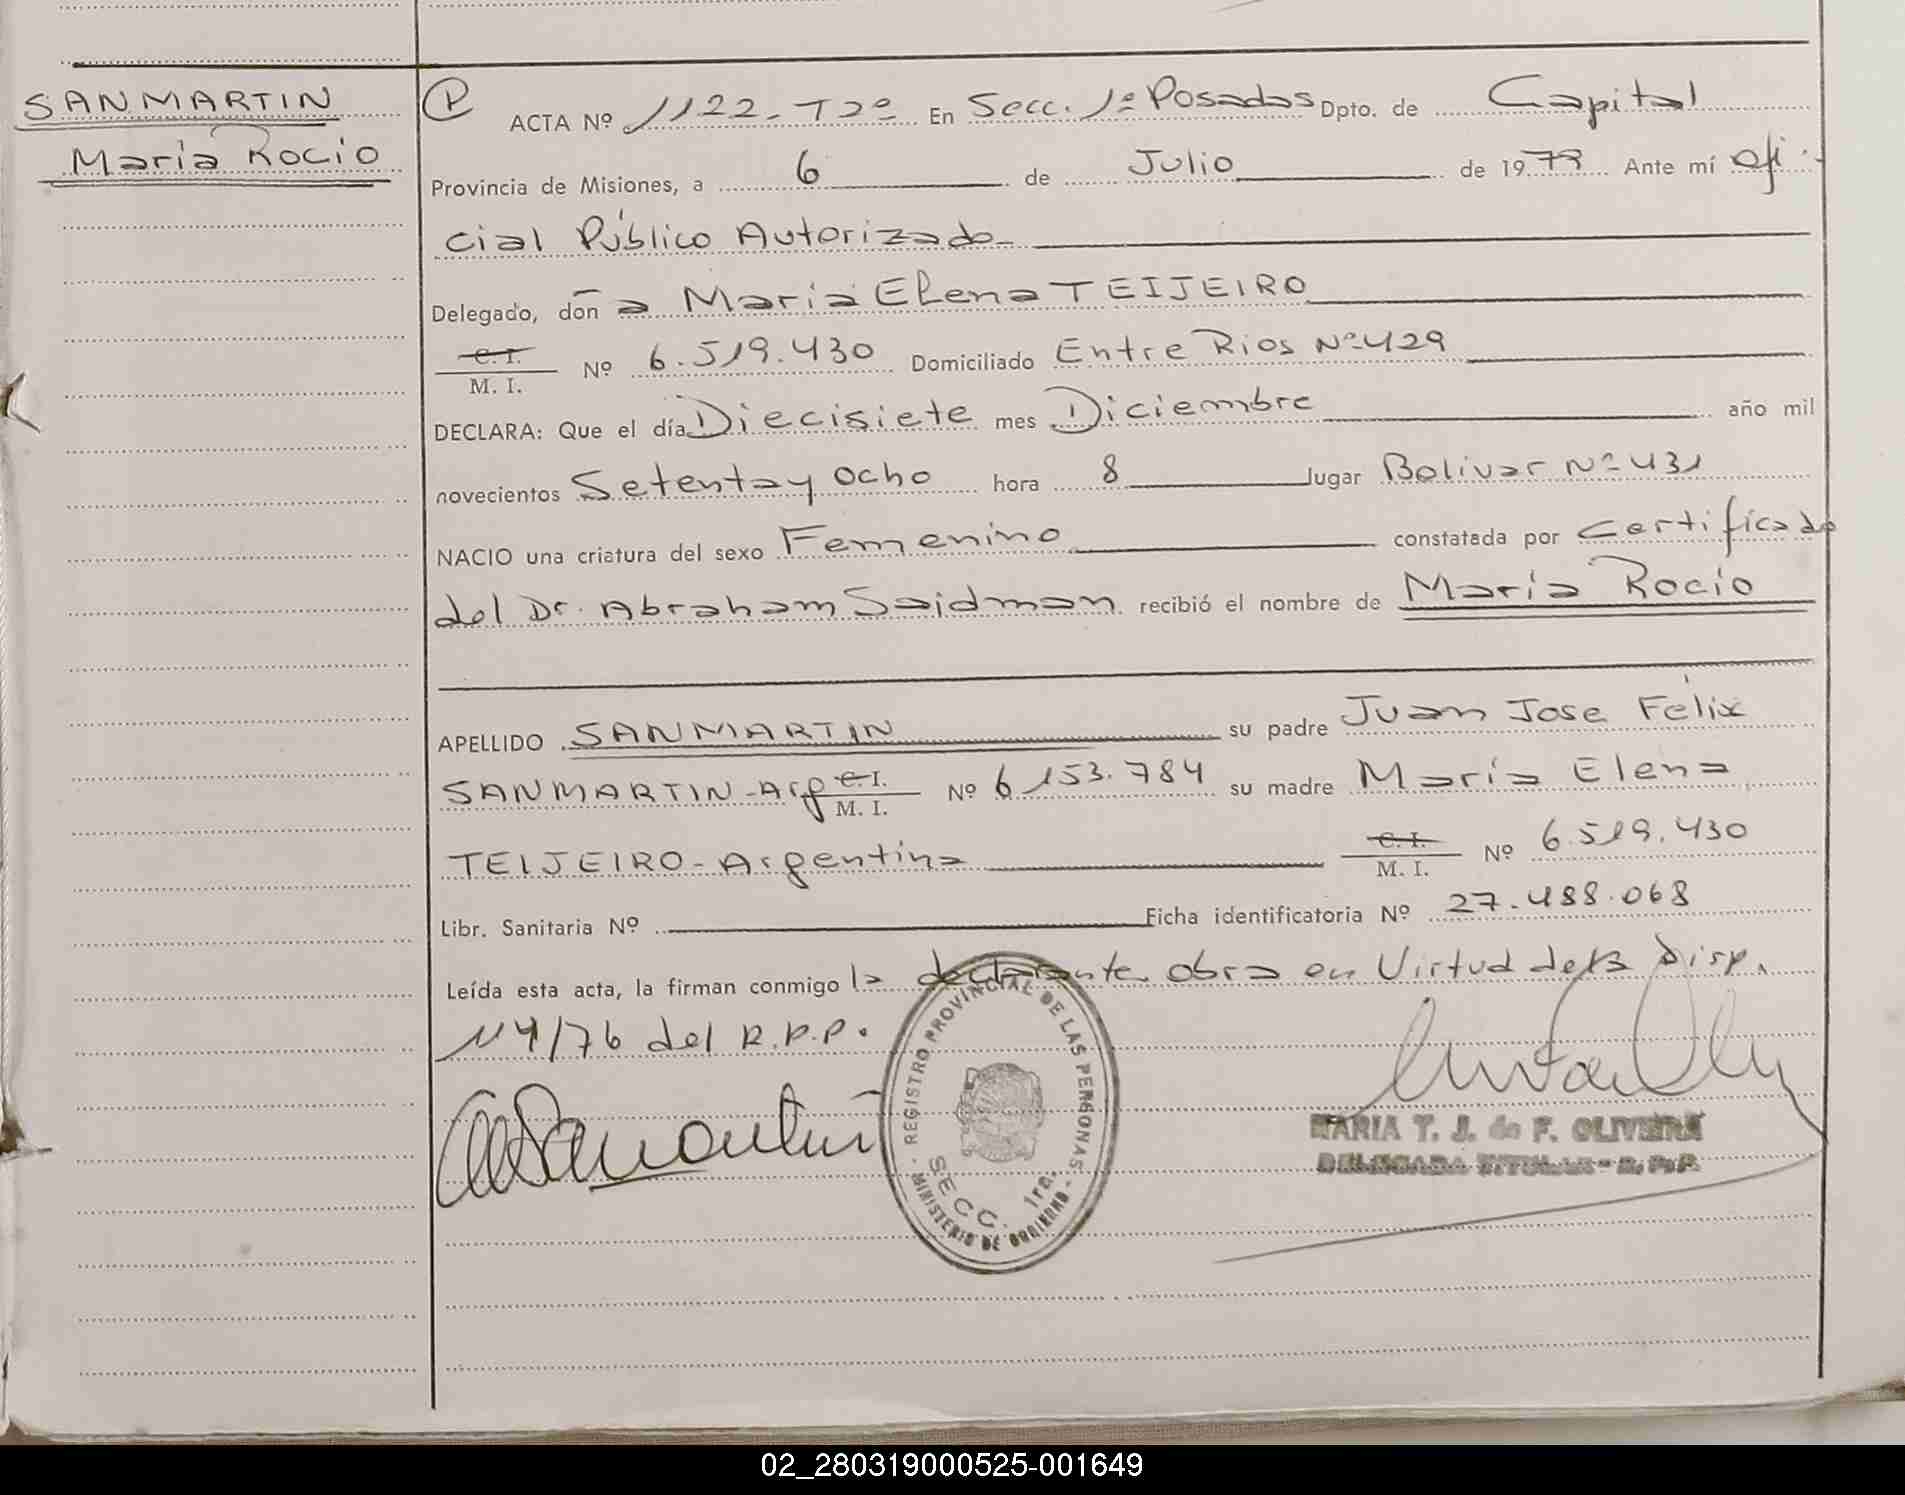 SANMARTIN
María Rocio
P
ACTA Nº 1122-T2º En Secc. 1ª Posadas Dpto. de Capital
Provincia de Misiones, a 6 de Julio de 1979 Ante mí ofi-
cial Público Autorizado
Delegado, doña María Elena TEIJEIRO
C. I.
M. I.
Nº 6.519.430 Domiciliado Entre Rios Nº 429
DECLARA: Que el día Diecisiete mes Diciembre año mil
novecientos Setenta y ocho hora 8 lugar Bolivar Nº 431
NACIO una criatura del sexo Femenino constatada por Certificado
del Dr. Abraham Saidman recibió el nombre de María Rocío
APELLIDO SANMARTIN su padre Juan Jose Félix
SANMARTIN-Arg C. I. M. I. Nº 6.153.784 su madre María Elena
TEIJEIRO-Argentina C. I. M. I. Nº 6.519.430
Libr. Sanitaria Nº Ficha identificatoria Nº 27.488.068
Leída esta acta, la firman conmigo la declarante obra en Virtud de la Disp.
114/76 del R.P.P.
REGISTRO PROVINCIAL DE LAS PERSONAS
MINISTERIO DE GOBIERNO
SECC. 1ra.
MARIA T. J. de F. OLIVEIRA
DELEGADA TITULAR - R. P. P.
02_280319000525-001649